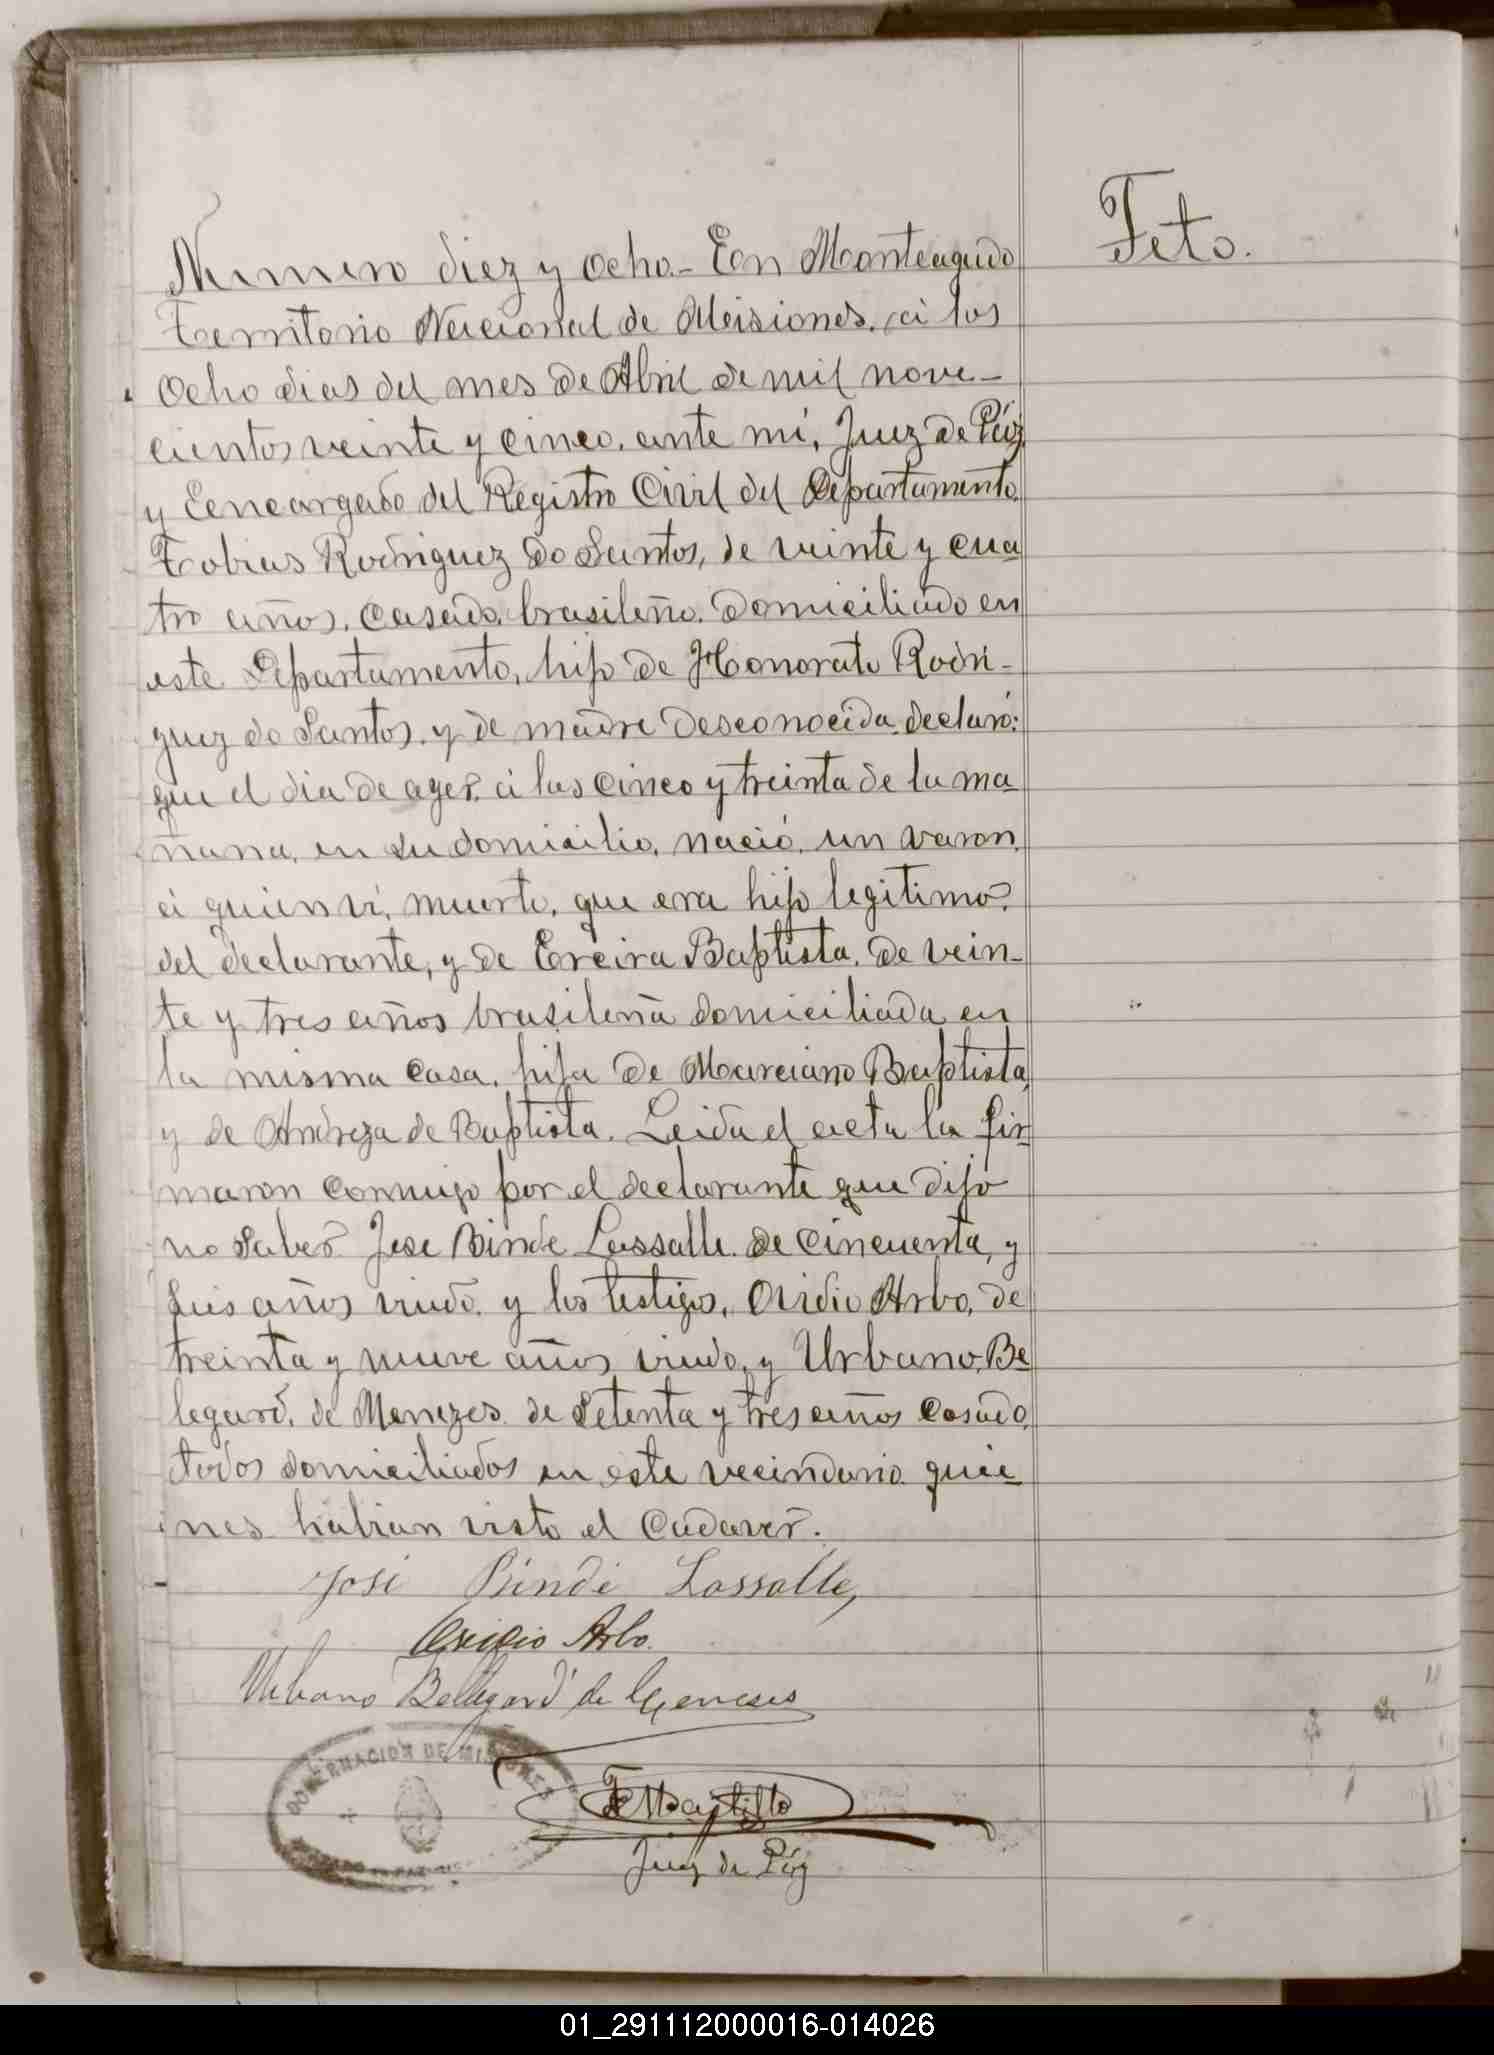 Feto.
Numero diez y ocho.- En Monteagudo
Territorio Nacional de Misiones, á los
ocho dias del mes de Abril de mil nove-
cientos veinte y cinco, ante mí, Juez de Páz
y Encargado del Registro Civil del Departamento,
Tobias Rodriguez do Santos, de veinte y cua
tro años, casado, brasileño, domiciliado en
este Departamento, hijo de Honorato Rodri-
guez do Santos, y de madre desconocida, declaró:
que el dia de ayer, á las cinco y treinta de la ma
ñana, en su domicilio, nació, un varon,
á quien ví, muerto, que era hijo legitimo,
del declarante, y de Ereira Baptista, de vein-
te y tres años brasileña domiciliada en
la misma casa, hija de Marciano Baptista,
y de Andreza de Baptista. Leida el acta la fir
maron conmigo por el declarante que dijo
no saber José Binde Lassalle de cincuenta, y
seis años viudo, y los testigos, Ovidio Arbo, de
treinta y nueve años viudo, y Urbano, Be
legard, de Menezes de setenta y tres años casado,
todos domiciliados en este vecindario quie
nes habian visto el cadaver.
José Binde Lassalle,
Ovidio Arbo.
Urbano Bellegard de Meneses
GOBERNACION DE MISIONES
Juez de Páz
01_291112000016-014026